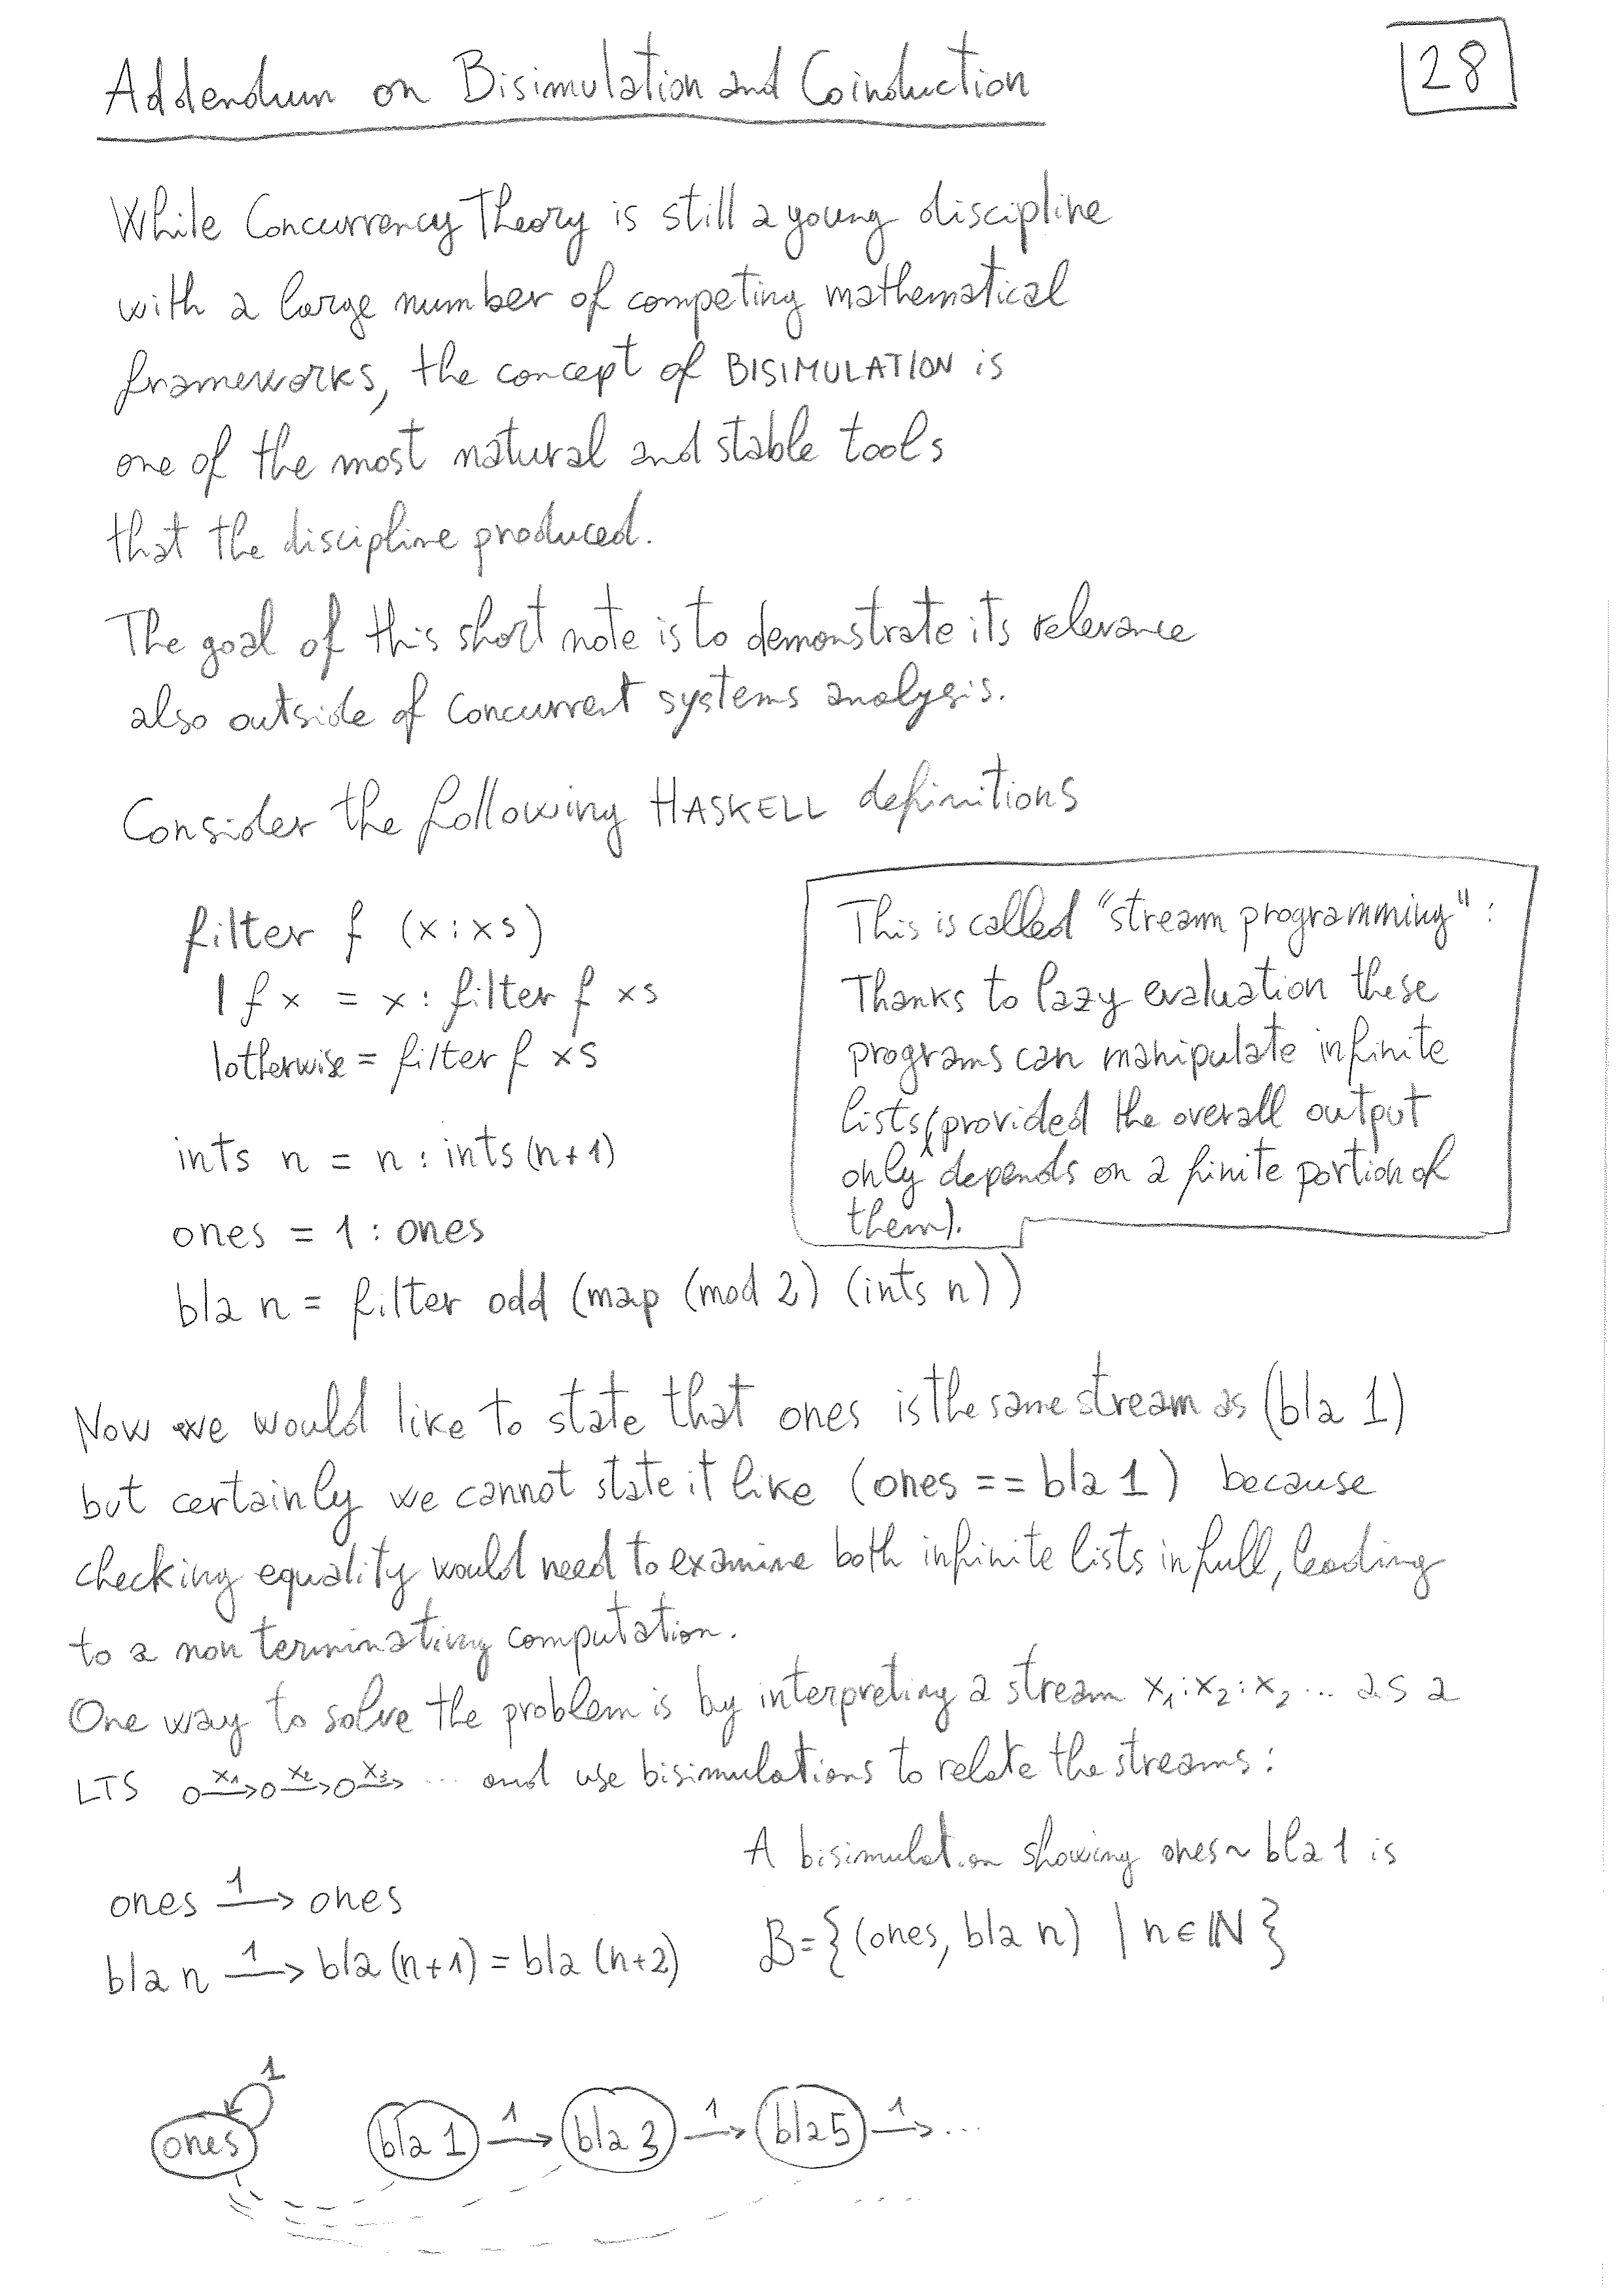 Addendum on Bisimulation and Coinduction
28
While Concurrency Theory is still a young discipline
with a large number of competing mathematical
frameworks, the concept of BISIMULATION is
one of the most natural and stable tools
that the discipline produced.
The goal of this short note is to demonstrate its relevance
also outside of concurrent systems analysis.
Consider the following HASKELL definitions
filter f (x:xs)
| f x = x : filter f xs
| otherwise = filter f xs
ints n = n : ints (n+1)
ones = 1 : ones
bla n = filter odd (map (mod 2) (ints n))
This is called "stream programming" :
Thanks to lazy evaluation these
programs can manipulate infinite
lists (provided the overall output
only depends on a finite portion of
them).
Now we would like to state that ones is the same stream as (bla 1)
but certainly we cannot state it like (ones == bla 1) because
checking equality would need to examine both infinite lists in full, leading
to a non terminating computation.
One way to solve the problem is by interpreting a stream x₁:x₂:x₂ ... as a
LTS o x₁→ o x₂→ o x₃→ ... and use bisimulations to relate the streams :
A bisimulation showing ones ~ bla 1 is
ones 1→ ones
B = {(ones, bla n) | n ∈ ℕ}
bla n 1→ bla (n+1) = bla (n+2)
1
ones bla 1 1→ bla 3 1→ bla 5 1→ ...
....